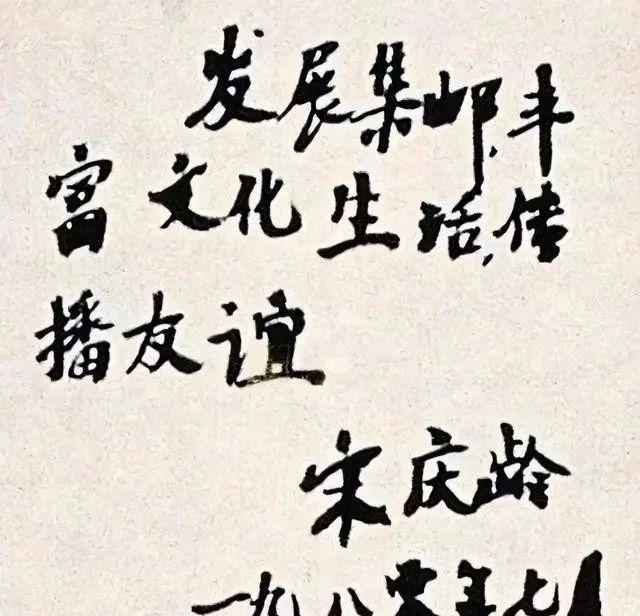 发展集邮,丰
富文化生活,传
播友谊
宋庆龄
一九八零年七月